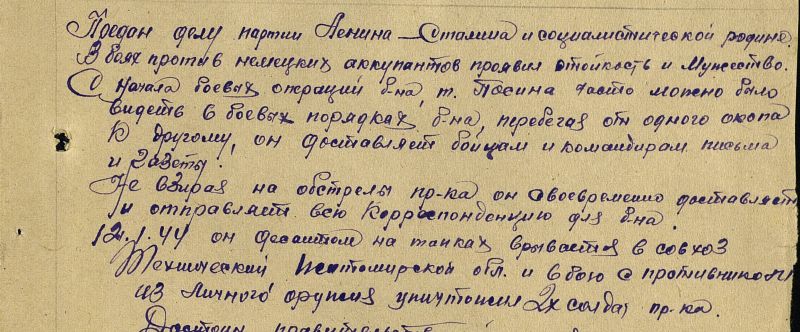 Предан делу партии Ленина – Сталина и социалистической родине.
В боях против немецких аккупантов проявил стойкость и мужество.
С начала боевых операций б-на, т. Посина часто можно было
видеть в боевых порядках б-на, перебегая от одного окопа
к другому, он доставляет бойцам и командирам письма
и газеты.
Не взирая на обстрелы пр-ка он своевременно доставляет
и отправляет всю корреспонденцию для б-на.
12.1.44 он десантом на танках врывается в совхоз
Технический Житомирской обл. и в бою с противником
из личного оружия уничтожил 2х солдат пр-ка.
Достоин правительств